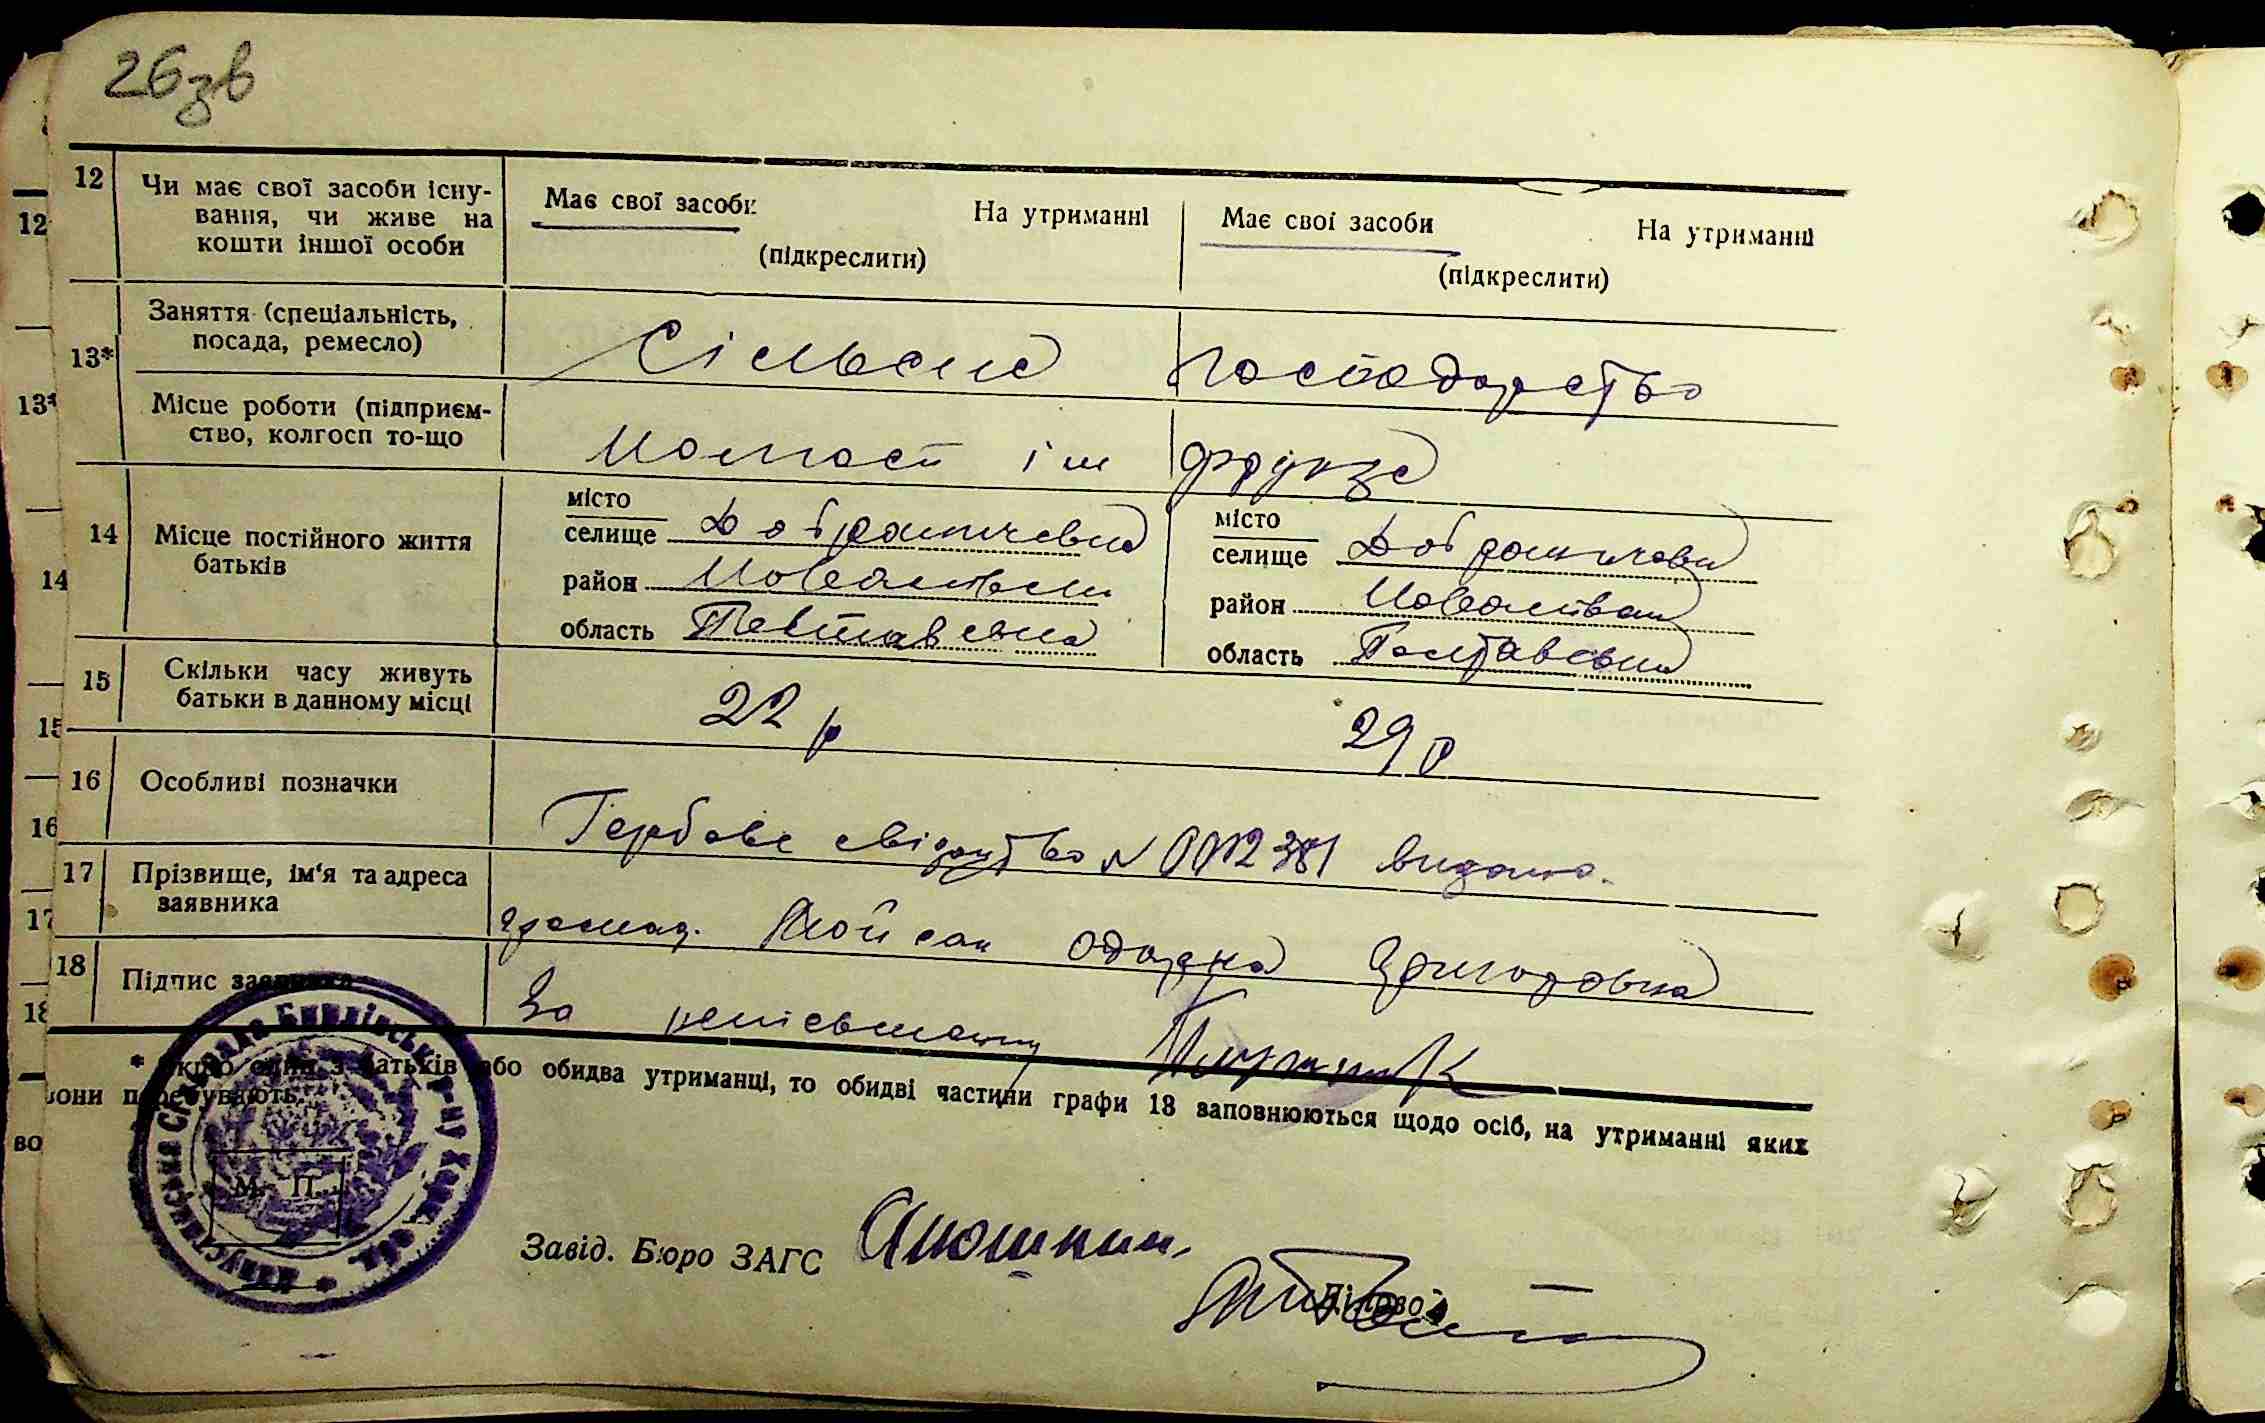 26зв
12 Чи має свої засоби існування, чи живе на кошти іншої особи
Має свої засоби На утриманні
(підкреслити)
Має свої засоби На утриманні
(підкреслити)
13* Заняття (спеціальність, посада, ремесло)
Сільське господарство
Місце роботи (підприємство, колгосп то-що
Колгосп ім Фрунзе
14 Місце постійного життя батьків
місто
селище
район
область Полтавська
місто
селище
район
область Полтавська
15 Скільки часу живуть батьки в данному місці
22 р
29 р
16 Особливі позначки
Гербове свідоцтво N 0012381 видано
17 Прізвище, ім'я та адреса заявника
громад. Одарка Григоровна
18 Підпис заявника
За неписьменну
* Якщо один з батьків або обидва утриманці, то обидві частини графи 13 заповнюються щодо осіб, на утриманні яких
вони перебувають.
М. П.
Завід. Бюро ЗАГС
Діловод